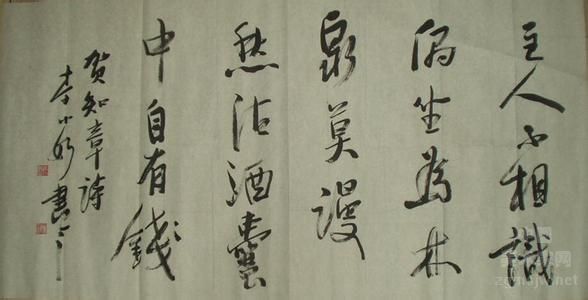 主人不相識
偶坐為林
泉莫謾
愁沽酒囊
中自有錢
贺知章詩
李小書